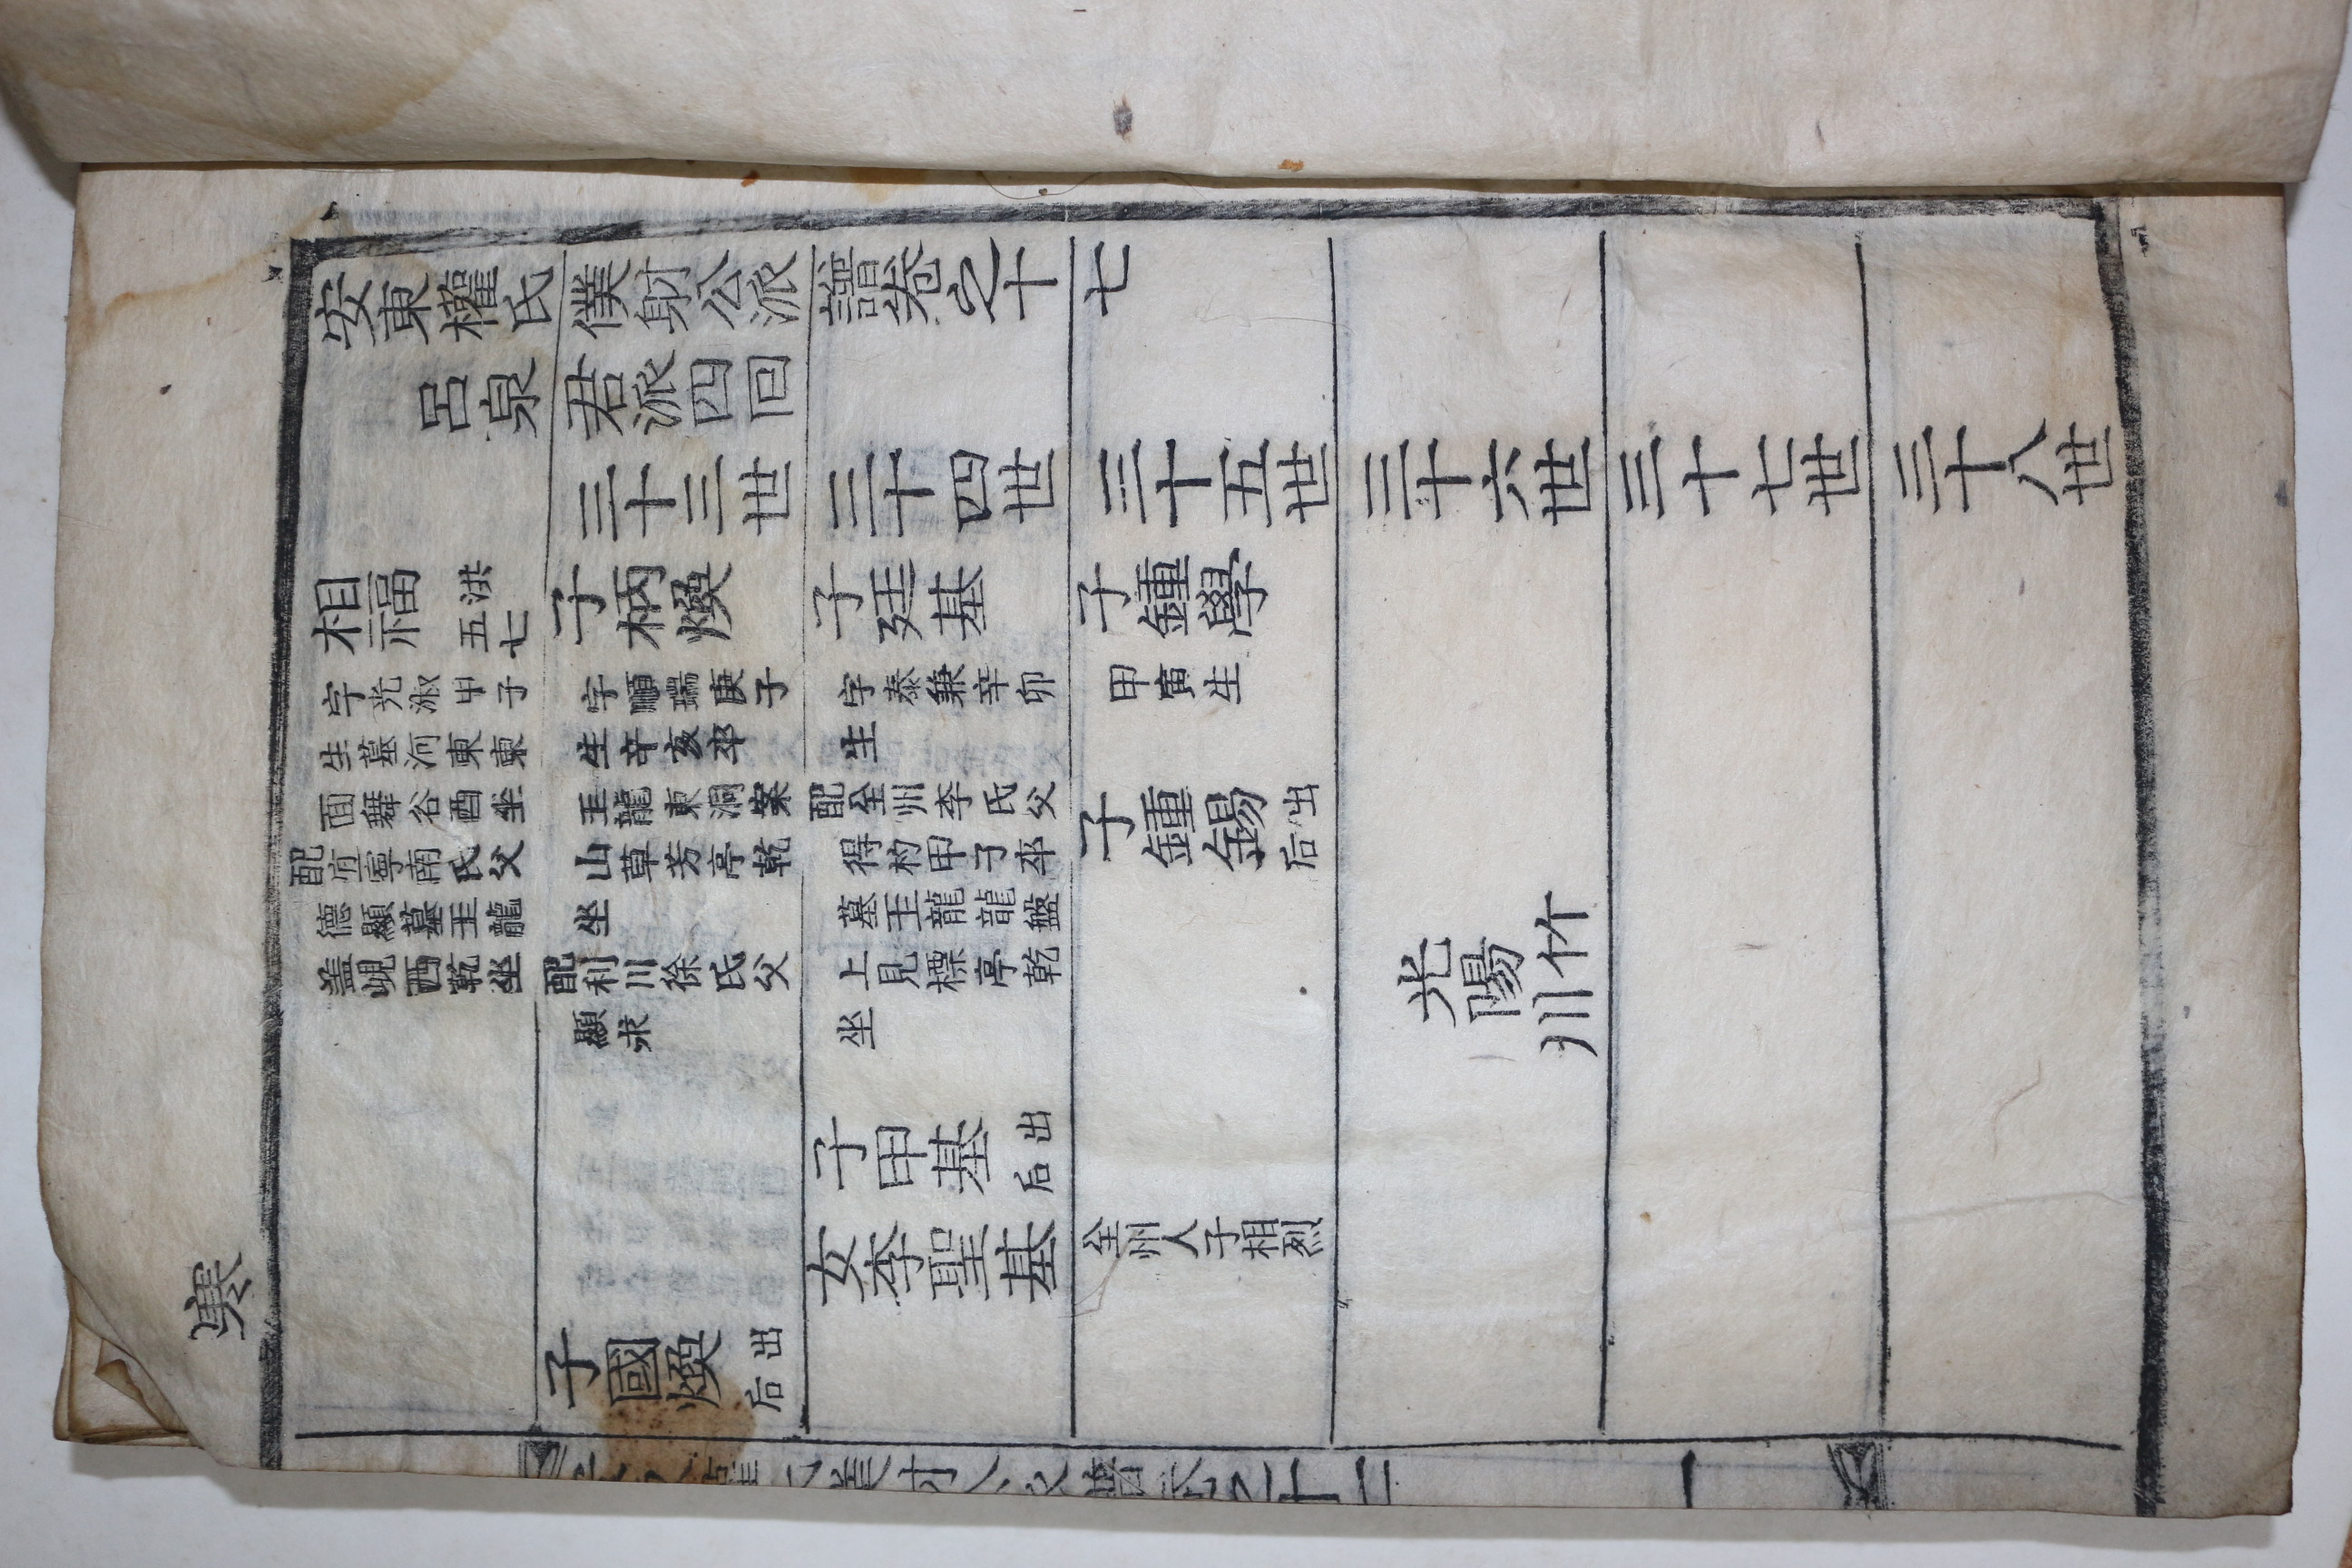 安東權氏僕射公派譜卷之十七
呂泉君派四回
三十三世 三十四世 三十五世 三十六世 三十七世 三十八世
相福 洪五七 子柄煥 子廷基 子鍾學
字光淑甲子 字瑞庚子 字泰兼辛卯 甲寅生
生墓河東東 生辛亥卒 生
面舞谷酉坐 玉龍東洞案 配全州李氏父 子鍾錫 出后
配宜寧南氏父 山草芳亭乾 得杓甲子卒
德顯墓玉龍 坐 墓玉龍龍盤
盖峴酉乾坐 配利川徐氏父 上見標亭乾 光陽竹川
顯求 坐
子甲基 出后
女李聖基 全州人子相烈
子國煥 出后
寒